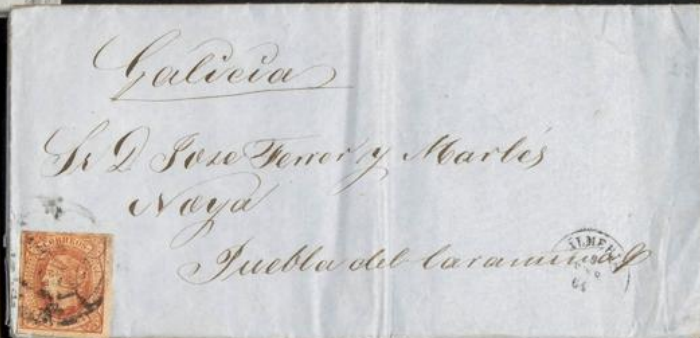 Galicia
Sr D Jose Ferrer y Marlés
Noya
Puebla del Caramiñal
CORREOS
ALMERIA
64